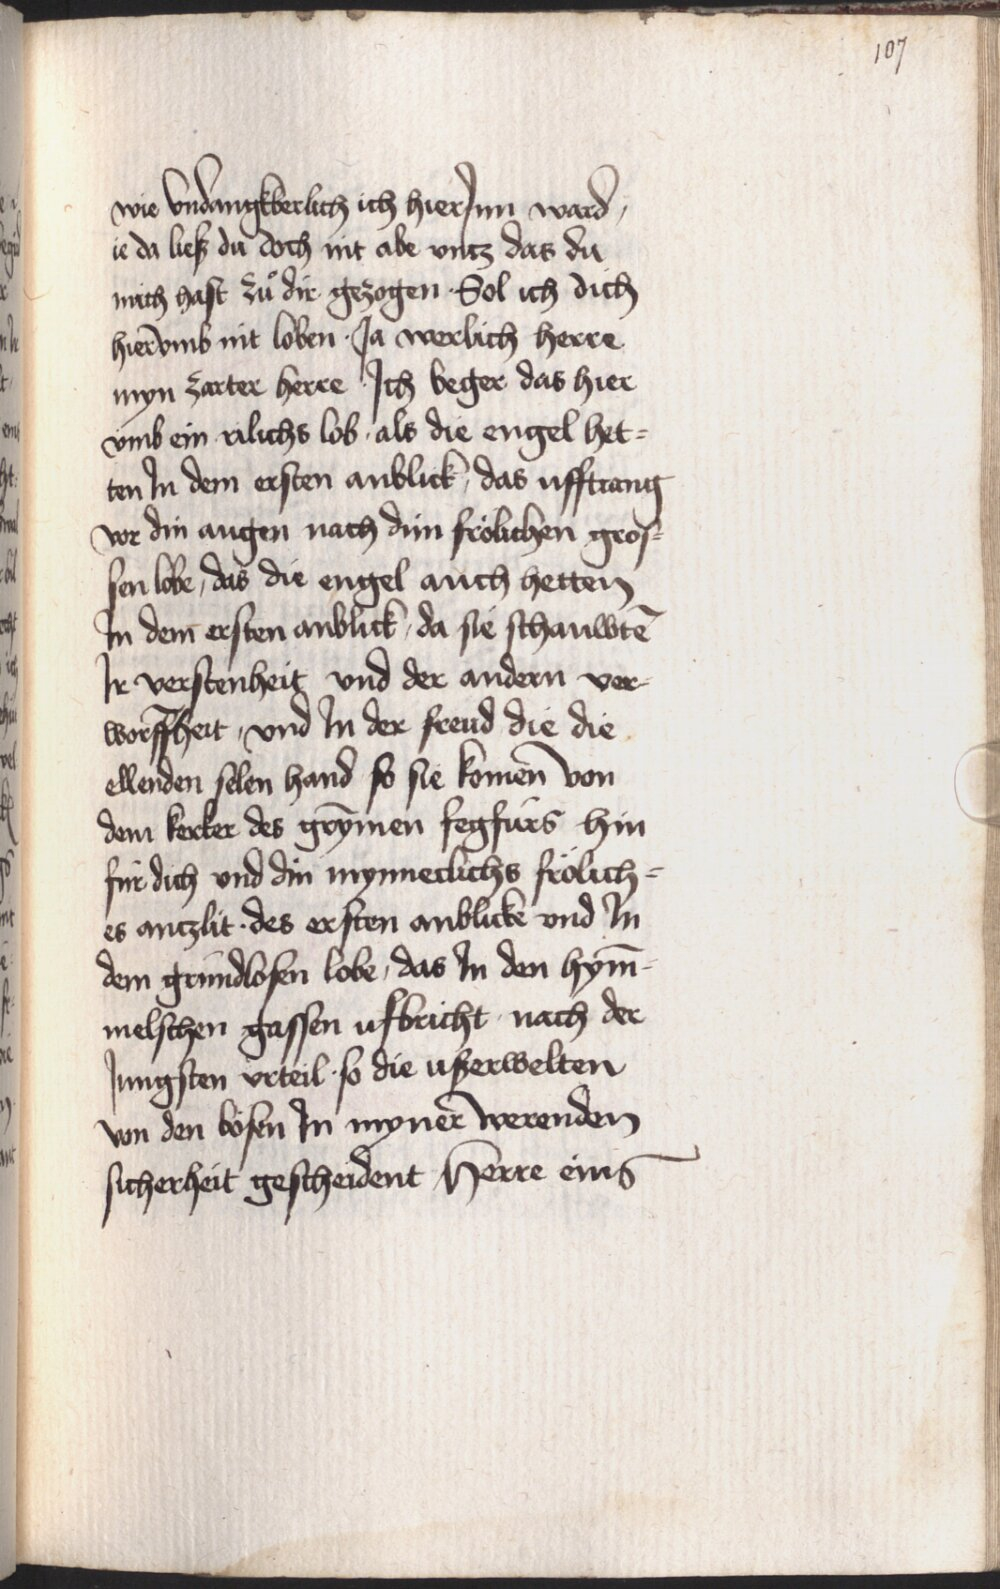 107
wie vndangkberlich ich hierJnn ward,
ie da ließ du doch nit abe vntz das du
mich hast zů dir gezogen · Sol ich dich
hierv̄mb nit loben · Ja werlich herre
myn zarter herre Ich beger das hier
vmb ein rilichs lob, als die engel het=
ten Jn dem ersten anblick, das ufftrang
vor din augen nach dim frölichen gros=
sen lobe, das die engel auch hetten
Jn dem ersten anblick, da sie schauwtē
Jr verstenheit vnd der andern ver-
worffheit, vnd Jn der freud die die
ellenden selen hand so sie komen von
dem kerker des grȳmen fegfürs hin
für dich vnd din mynneclichs frölich=
es antzlit · des ersten anblicke vnd Jn
dem grundlosen lobe, das Jn den hȳm̄-
melschen gassen ufbricht nach der
Jungsten vrteil · so die ußerwelten
von den bösen Jn myner werenden
sicherheit gescheident Herre eins